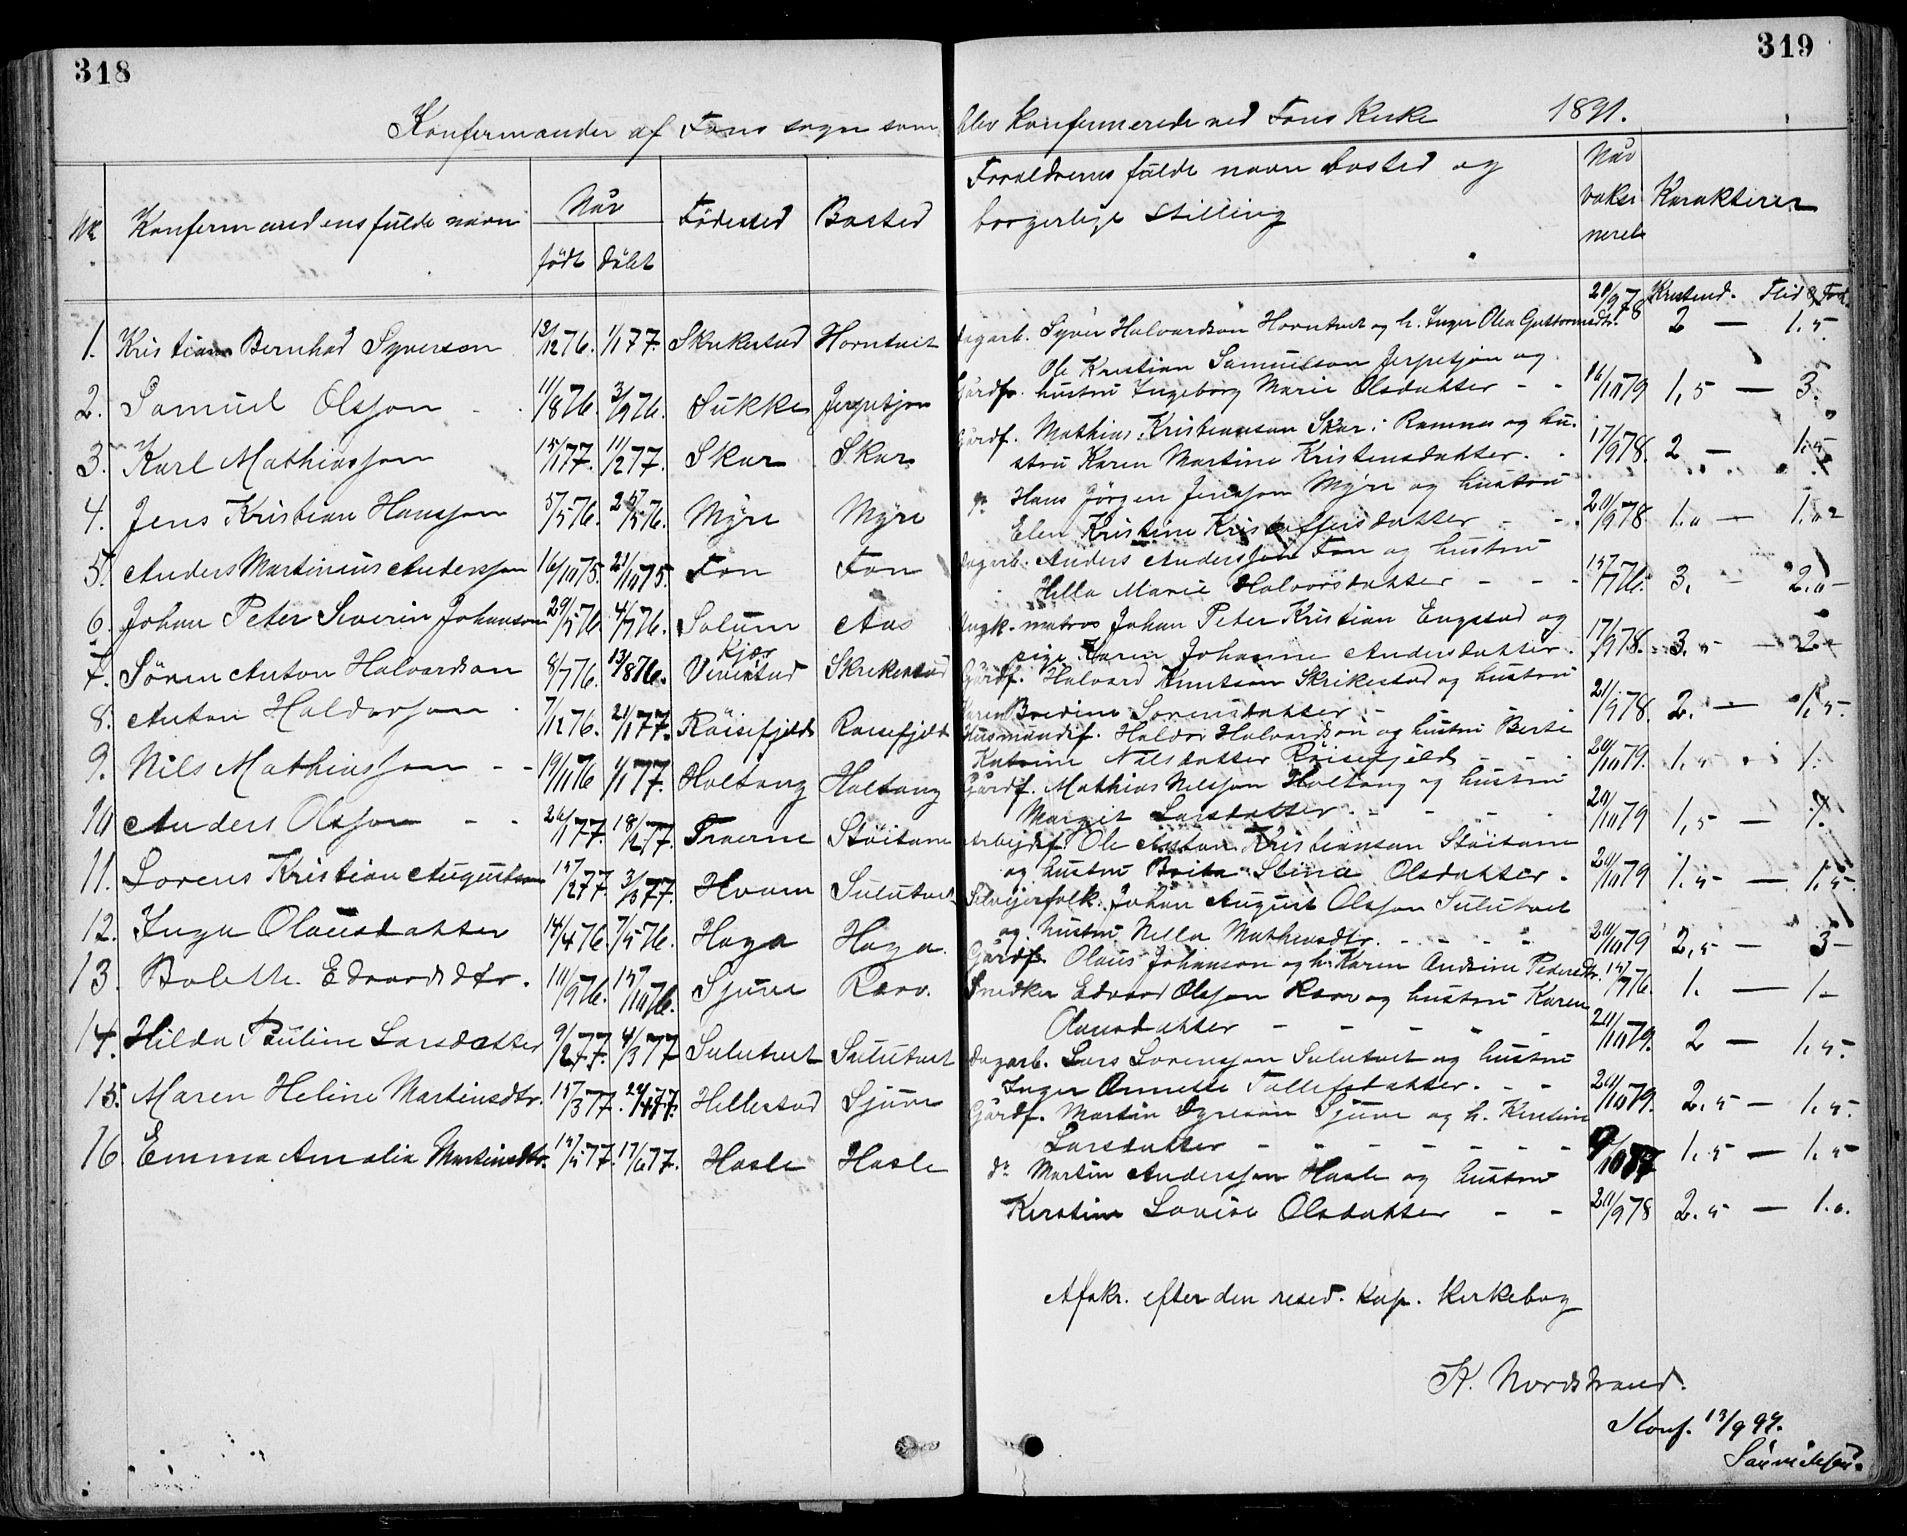 318
319
Konfermander af Fons sogn som blev konfermerede ved Fons kirke 1891.
Nr Konfermandens fulde navn Når Födested Bosted Forældrenes fulde navn bosted og Når
födt döbt borgerlige stilling vaksi Karakterer
nerede
Kristend. Flid &
1. Kristian Bernhad Syverson 12/12 76. 1/1 77. Skrikestad Horntvet dagarb. Syver Halvordson Horntvet og h. Inger Olea Guttormsdtr. 28/9 78 2 — 1.5
2. Samuel Olsson 11/8 76. 3/9 76. Sukke Jerpetjøn Gårdf. Ole Kristian Samuelson Jerpetjøn og
hustru Ingeborg Marie Olsdatter - - 16/10 79 1,5 — 3.
3. Karl Mathiasson 15/1 77. 11/2 77. Skar Skar Gårdf. Mathias Kristianson Skar i Ramnes og hu-
stru Karen Martine Kristensdatter. 17/9 78. 2 — 1.5
4. Jens Kristian Hansson 5/5 76. 25/5 76. Myre Myre Hans Jörgen Jensson Myre og hustru
Elen Kristine Kristoffersdatter - - 20/9 78 1.0 — 1.0
5. Anders Martinius Andersson 16/10 75. 21/10 75. Fon Fon dagarb. Anders Andersson Fon og hustru
Hella Marie Halvorsdatter - - - 15/7 76. 3. - 2.0
6. Johan Peter Severin Johanson 29/5 76. 4/7 76. Solum Aas Ungk. matros Johan Peter Kristian Engstad og
pige Karen Johanne Andersdatter. 17/9 78. 3.5 - 2.
7. Sören Anton Halvordson 8/7 76. 13/8 76. Kjær Virikstad Skrikestad Gårdf. Halvord Knutson Skrikestad og hustru
Karen Bredine Sorensdatter - - 21/9 78. 2. — 1,5.
8. Anton Haldorson 7/12 76. 21/1 77. Röisefjeld Roisefjeld Husmandsf. Haldor Halvordson og hustru Berte
Katrine Nilsdatter Röisefjeld - - 20/10 79. 1.5 1.
9. Nils Mathiasson - - 19/11 76 1/1 77. Holtang Holtang Gårdf. Mathias Nilsson Holtang og hustru
Margit Larsdatter. - - - 20/10 79 1,5 —
10 Anders Olsson - - 26/1 77. 18/2 77. Traerne Stöitam Arbejdsf. Ole Anton Kristianson Stöitam
og hustru Brita Stina Olsdatter - 20/10 79 1.5 — 1.5.
11. Lorens Kristian Augustson 15/2 77. 3/3 77. Hvam Sulutvet Selvejerfolk. Johan August Olsson Sulutvet
og hustru Nella Mathiasdtr. - - - - 20/10 79 2,5 — 3 -
12. Inga Olausdatter 14/4 76. 7/5 76. Haga Haga. Gårdf. Olaus Johanson og h. Karen Andrine Pedersdtr. 15/7 76. 1. — 1 -
13. Bolette Edvardsdtr. 10/9 76. 15/10 76. Sjuve Rærv. Snedker Edvard Olsson Rærv og hustru Karen
Olausdatter - - - - - 20/10 79. 2 — 1,5.
14. Hilda Pauline Larsdatter 9/2 77. 4/3 77 Sulutvet Sulutvet dagarb. Lars Lorensson Sulutvet og hustru
Inger Annette Tollefsdatter. - - 20/10 79. 2.5 — 1,5.
15. Maren Heline Martinsdtr. 15/3 77. 22/4 77. Hillestad Sjuve Gårdf. Martin Syverson Sjuve og h. Kirstine
Larsdatter - - - - - - 9/10 87 1.5 — 1,5
16. Emma Amalia Martinsdtr. 14/5 77. 17/6 77. Hasle Hasle do Martin Andersson Hasle og hustru
Kirstine Lovise Olsdatter - - 20/9 78 2.5 — 1.0.
Afskr. efter den resid. kap. kirkebog
K. Nordstrand.
Konf. 13/9 99.